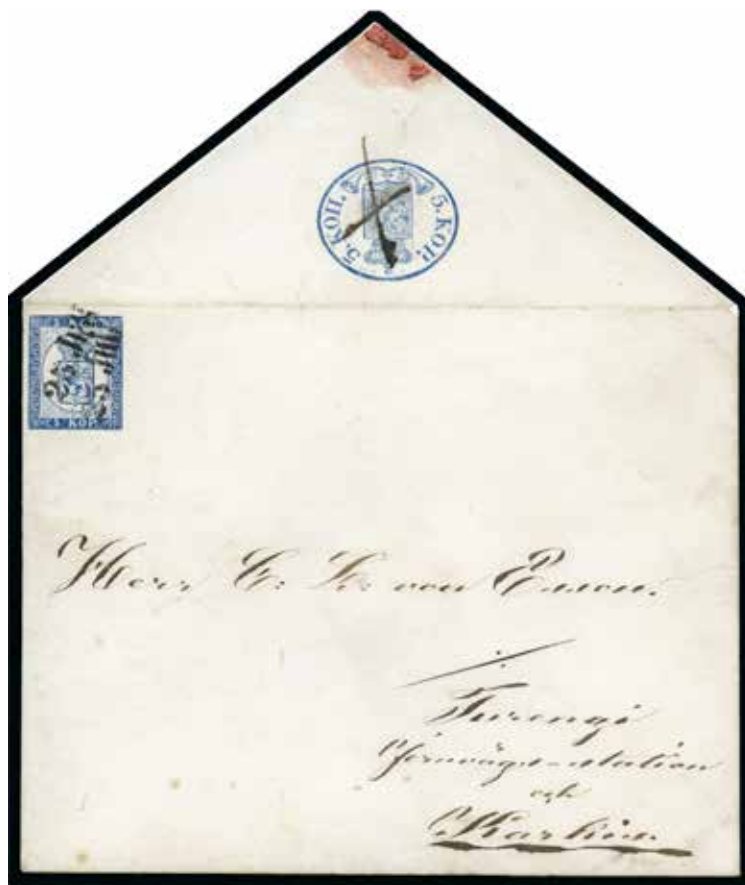 5. КОП. 5. KOP.
5 KOP.
Herr C: F: von Essen.
Turengi
jernvägs-station
och
Karkus.